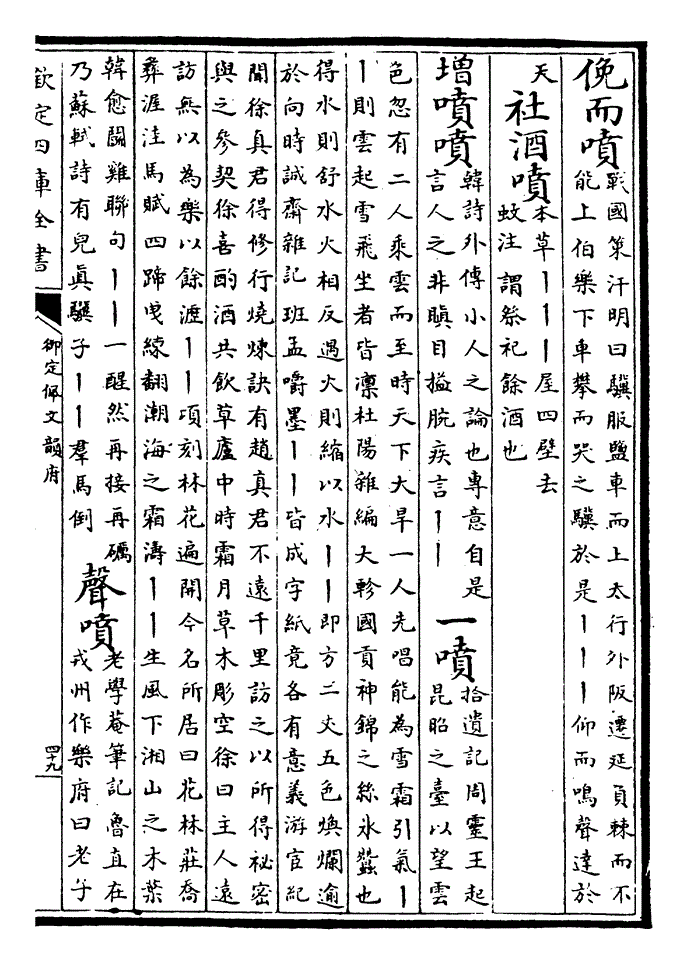 俛而噴戰國策汗明曰驥服鹽車而上太行外阪遷延負棘而不
能上伯樂下車攀而哭之驥於是丨丨丨仰而鳴聲達於
天社酒噴本草丨丨丨屋四壁去
蚊注謂祭祀餘酒也
增噴噴韓詩外傳小人之論也專意自是
言人之非瞋目搤腕疾言丨丨
一噴拾遺記周靈王起
昆昭之臺以望雲
色忽有二人乘雲而至時天下大旱一人先唱能為雪霜引氣丨
丨則雲起雪飛坐者皆凛杜陽雜編大軫國貢神錦之絲氷蠶也
得水則舒水火相反遇火則縮以水丨丨即方二丈五色煥爛逾
於向時誠齋雜記班孟嚼墨丨丨皆成字紙竟各有意義游宦紀
聞徐真君得修行燒煉訣有趙真君不遠千里訪之以所得祕密
與之參契徐喜酌酒共飲草廬中時霜月草木彫空徐曰主人遠
訪無以為樂以餘瀝丨丨項刻林花遍開今名所居曰花林莊喬
彛渥洼馬賦四蹄曳練翻潮海之霜濤丨丨生風下湘山之木葉
韓愈鬬雞聯句丨丨一醒然再接再礪
乃蘇軾詩有兒真驥子丨丨羣馬倒
聲噴老學菴筆記魯直在
戎州作樂府曰老子
欽定四庫全書
御定佩文韻府
四十九